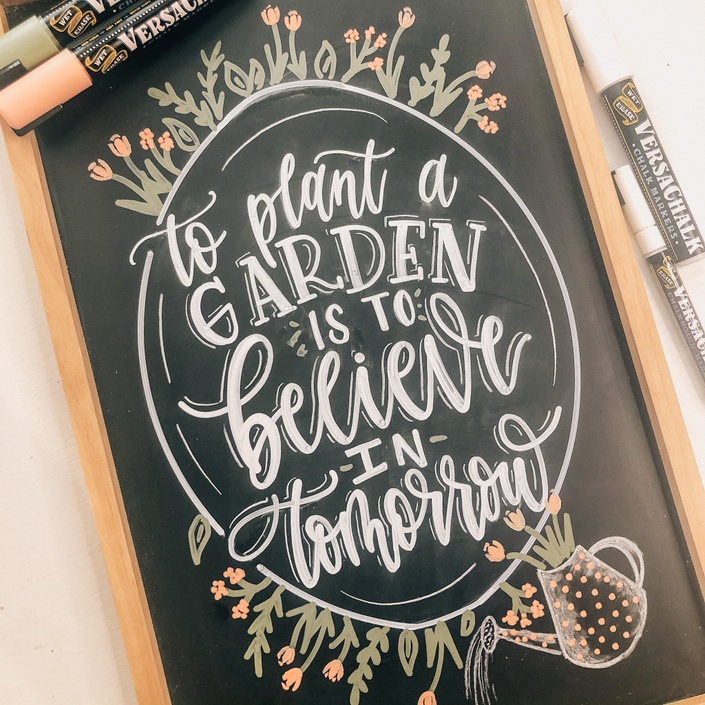 WET
ERASE
VERSACHALK
WET
ERASE
VERSACHALK
to plant a
GARDEN
IS TO
believe
IN
tomorrow
WET
ERASE
VERSACHALK
• CHALK MARKERS •
WET
ERASE